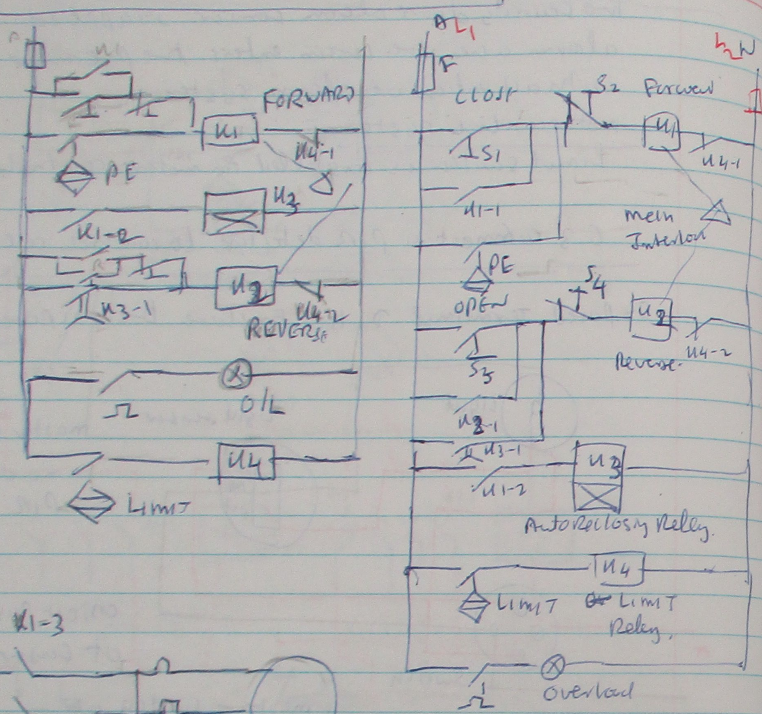 FORWARD
K1
K4-1
PE
K3
K1-2
K2
K3-1
K4-2
REVERSE
O/L
K4
LIMIT
K1-3
A L1
L2 N
F
CLOSE
S2
Forward
K1
S1
K4-1
K1-1
Mein
Interlock
PE
OPEN
S4
K2
S3
Reverse
K4-2
K2-1
K3-1
K3
K1-2
AutoReclosing Relay.
K4
LIMIT
LIMIT
Relay.
Overload